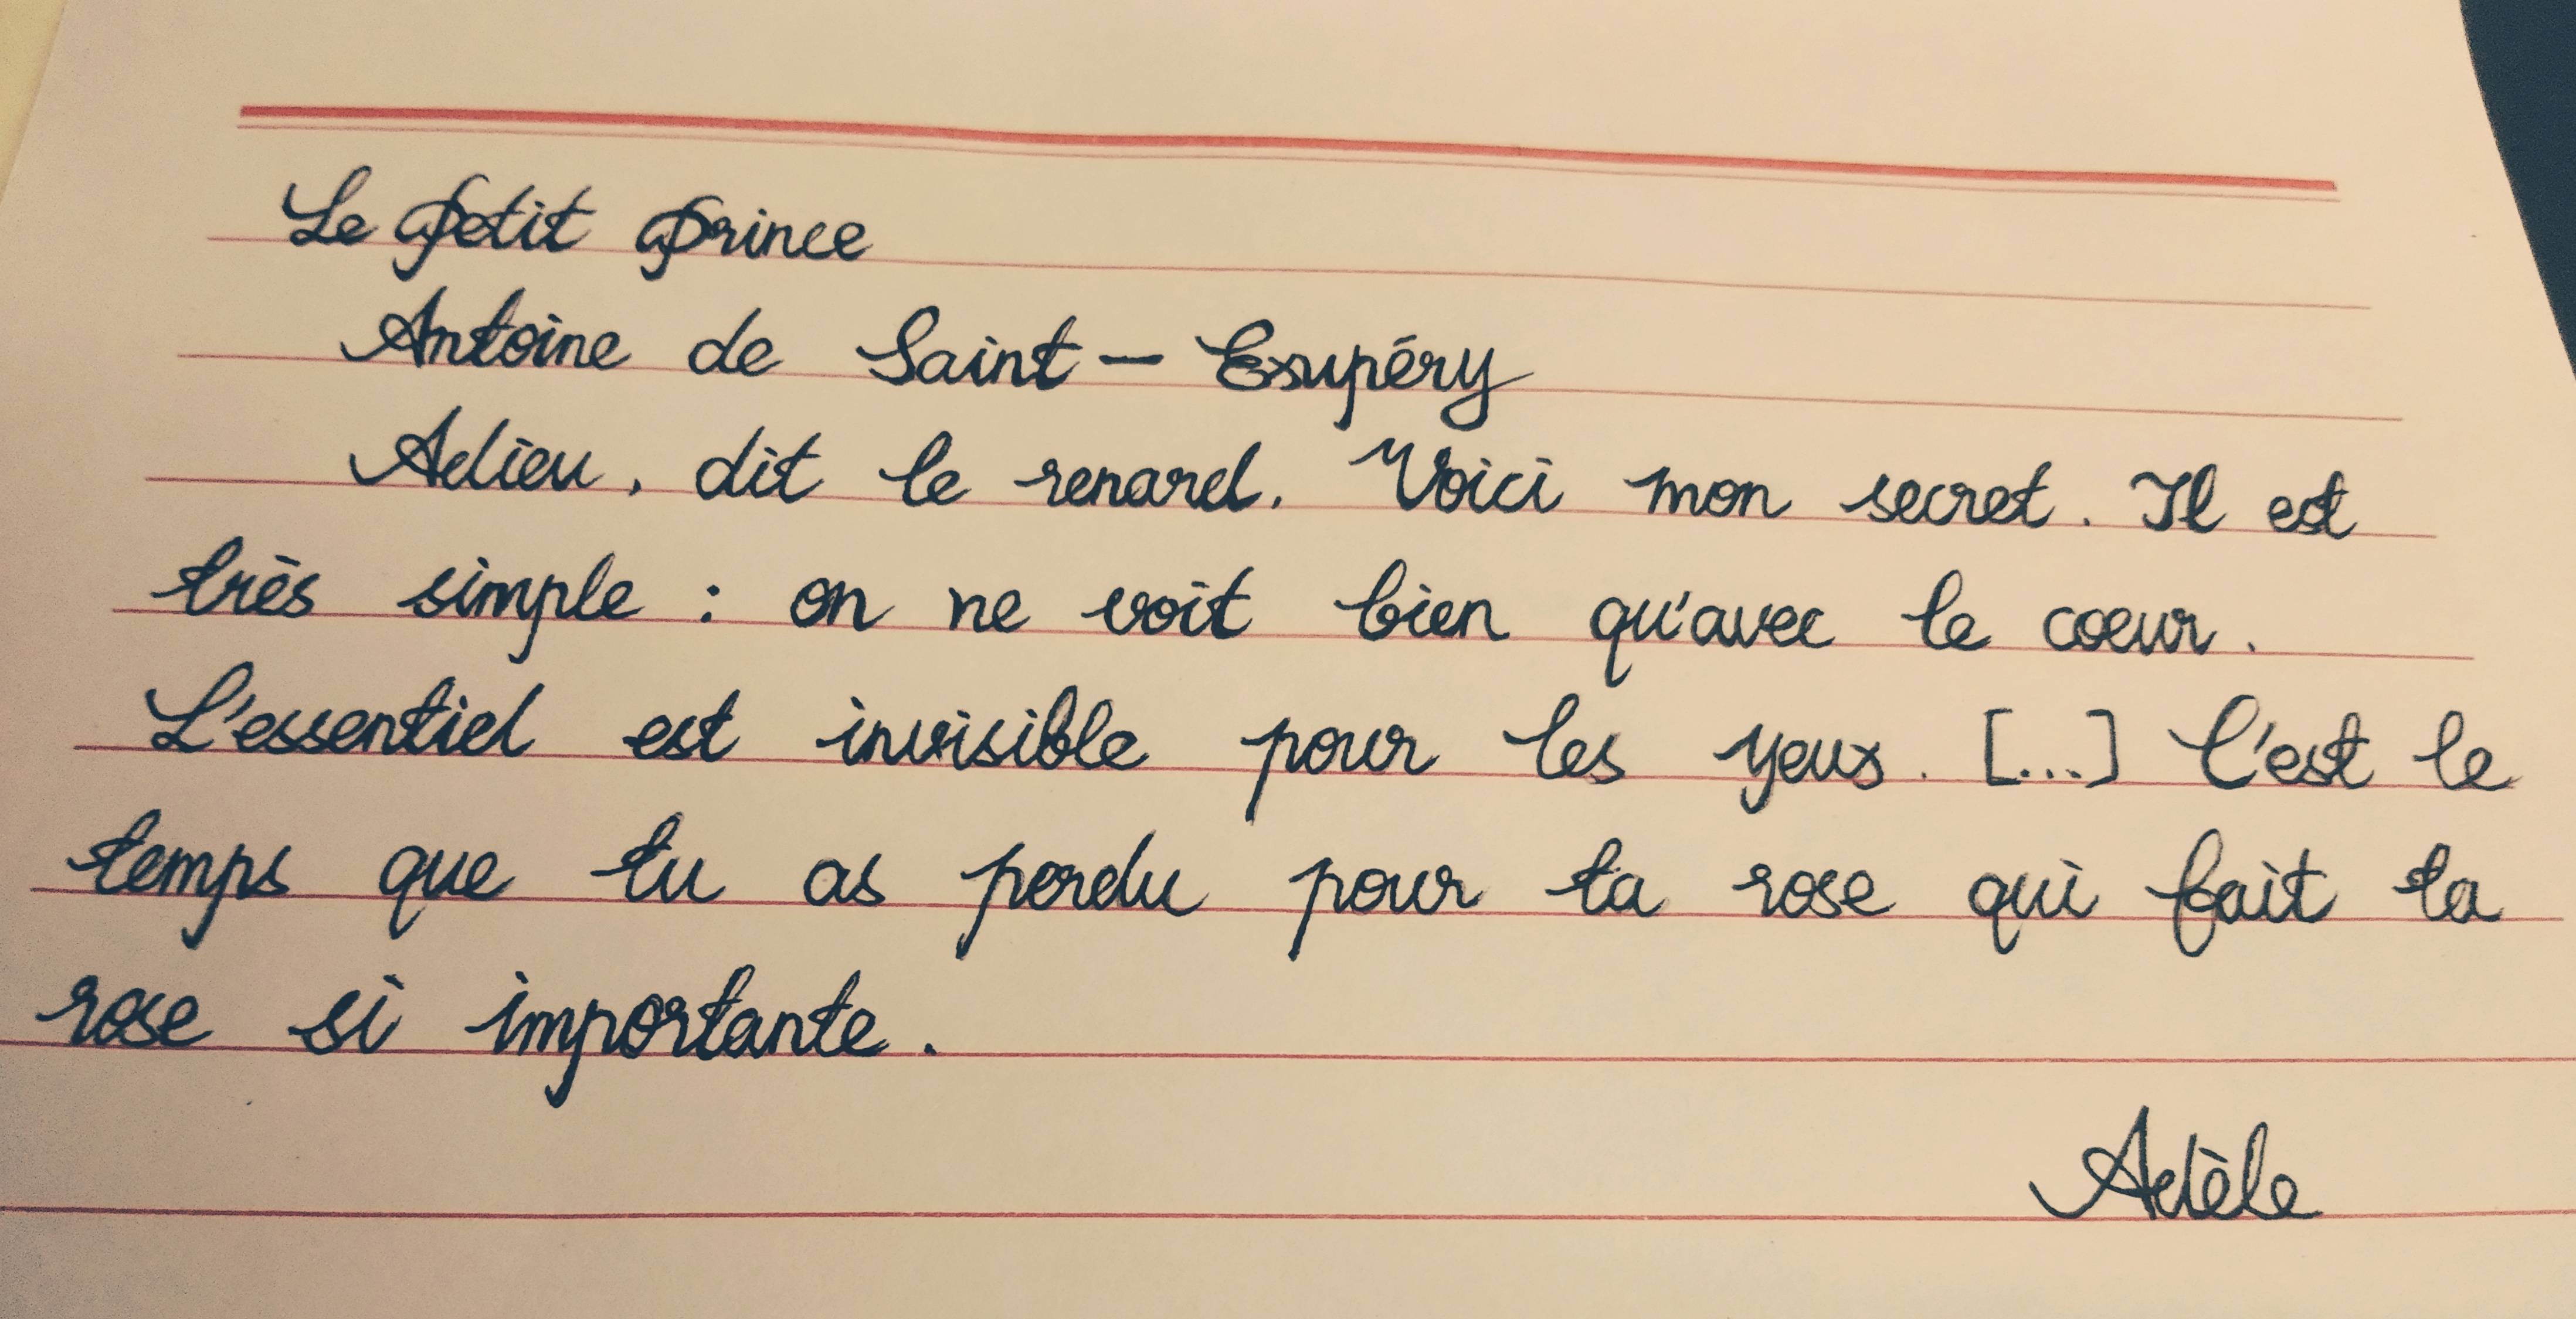 Le Petit Prince
Antoine de Saint-Exupéry
Adieu, dit le renard. Voici mon secret. Il est
très simple : on ne voit bien qu'avec le cœur.
L'essentiel est invisible pour les yeux. [...] C'est le
temps que tu as perdu pour ta rose qui fait ta
rose si importante.
Adèle